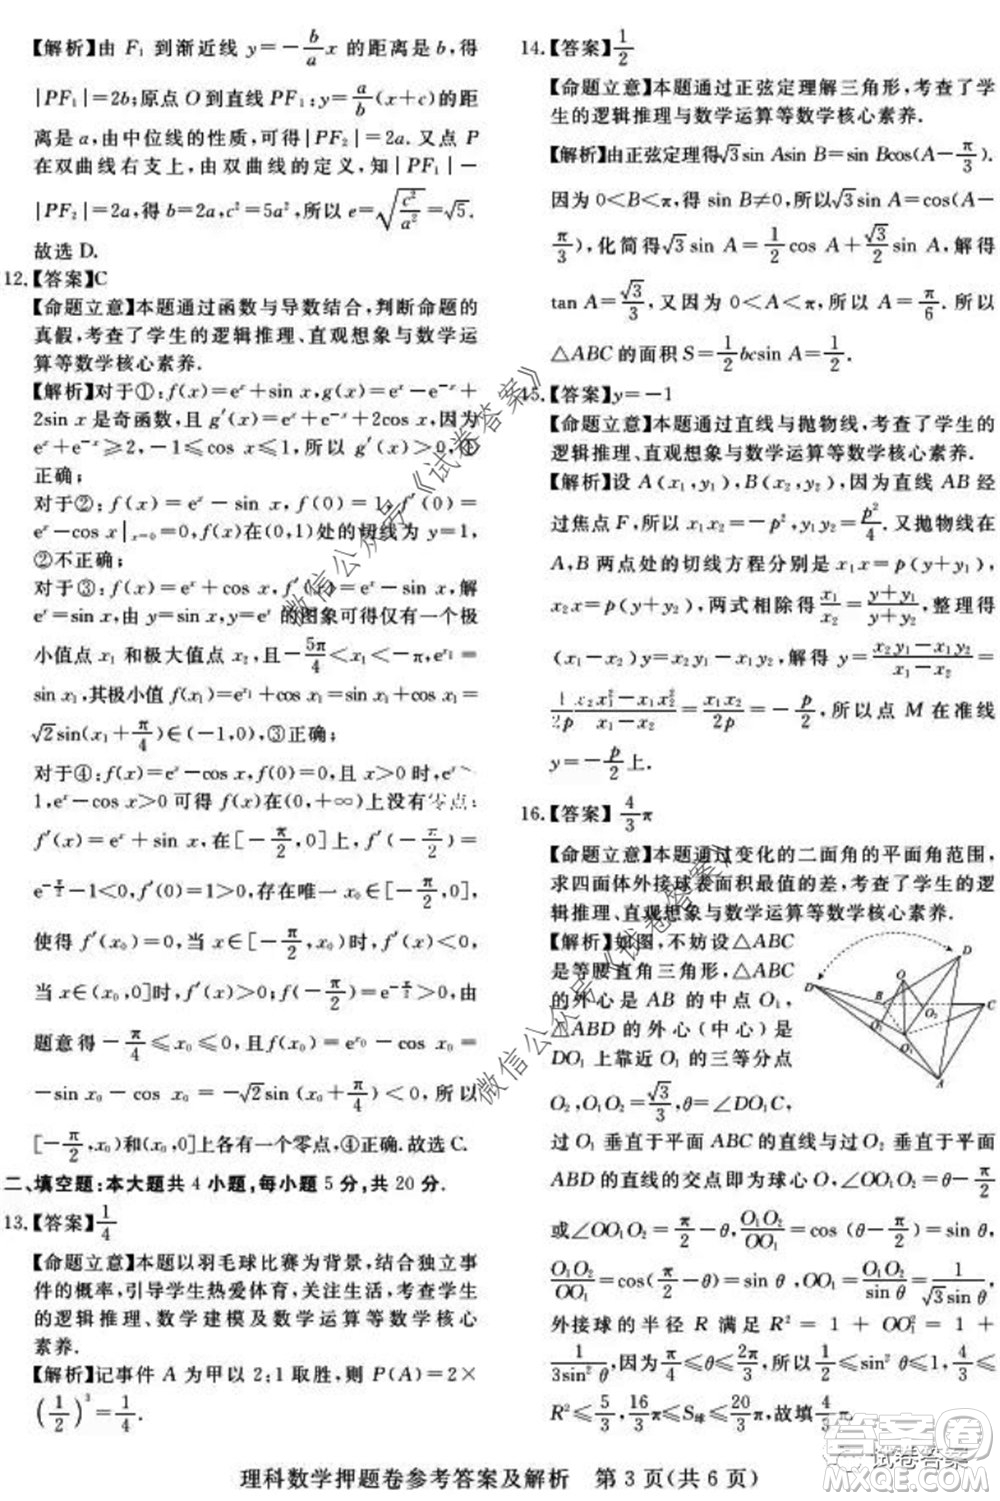 【解析】由 F₁ 到渐近线 y=-b/a x 的距离是 b,得
|PF₁|=2b;原点 O 到直线 PF₁:y=a/b(x+c)的距
离是 a,由中位线的性质,可得|PF₂|=2a. 又点 P
在双曲线右支上,由双曲线的定义,知|PF₁|-
|PF₂|=2a,得 b=2a,c²=5a²,所以 e=√(c²/a²)=√5.
故选 D.
12.【答案】C
【命题立意】本题通过函数与导数结合,判断命题的
真假,考查了学生的逻辑推理、直观想象与数学运
算等数学核心素养.
【解析】对于①:f(x)=eˣ+sin x,g(x)=eˣ-e⁻ˣ+
2sin x 是奇函数,且 g′(x)=eˣ+e⁻ˣ+2cos x,因为
eˣ+e⁻ˣ≥2,-1≤cos x≤1,所以 g′(x)>0,①
正确;
对于②:f(x)=eˣ-sin x,f(0)=1,f′(0)=
eˣ-cos x|ₓ₌₀=0,f(x)在(0,1)处的切线为 y=1,
②不正确;
对于③:f(x)=eˣ+cos x,f′(x)=eˣ-sin x,解
eˣ=sin x,由 y=sin x,y=eˣ 的图象可得仅有一个极
小值点 x₁ 和极大值点 x₂,且-5π/4<x₁<-π,e^(x₁)=
sin x₁,其极小值 f(x₁)=e^(x₁)+cos x₁=sin x₁+cos x₁=
√2sin(x₁+π/4)∈(-1,0),③正确;
对于④:f(x)=eˣ-cos x,f(0)=0,且 x>0 时,eˣ>
1,eˣ-cos x>0 可得 f(x)在(0,+∞)上没有零点;
f′(x)=eˣ+sin x,在[-π/2,0]上,f′(-π/2)=
e^(-π/2)-1<0,f′(0)=1>0,存在唯一 x₀∈(-π/2,0)
使得 f′(x₀)=0,当 x∈[-π/2,x₀)时,f′(x)<0;
当 x∈(x₀,0]时,f′(x)>0;且 f(-π/2)=e^(-π/2)>0,由
题意得-π/4≤x₀≤0,且 f(x₀)=e^(x₀)-cos x₀=
-sin x₀-cos x₀=-√2sin(x₀+π/4)<0,所以
[-π/2,x₀)和(x₀,0]上各有一个零点,④正确.故选 C.
二、填空题:本大题共 4 小题,每小题 5 分,共 20 分.
13.【答案】1/4
【命题立意】本题以羽毛球比赛为背景,结合独立事
件的概率,引导学生热爱体育,关注生活,考查学生
的逻辑推理、数学建模及数学运算等数学核心
素养.
【解析】记事件 A 为甲以 2:1 取胜,则 P(A)=2×
(1/2)³=1/4.
14.【答案】1/2
【命题立意】本题通过正弦定理解三角形,考查了学
生的逻辑推理与数学运算等数学核心素养.
【解析】由正弦定理得√3sin Asin B=sin Bcos(A-π/3).
因为 0<B<π,得 sin B≠0,所以√3sin A=cos(A-
π/3),化简得√3sin A=1/2 cos A+√3/2 sin A,解得
tan A=√3/3,又因为 0<A<π,所以 A=π/6. 所以
△ABC 的面积 S=1/2 bcsin A=1/2.
15.【答案】y=-1
【命题立意】本题通过直线与抛物线,考查了学生的
逻辑推理、直观想象与数学运算等数学核心素养.
【解析】设 A(x₁,y₁),B(x₂,y₂),因为直线 AB 经
过焦点 F,所以 x₁x₂=-p²,y₁y₂=p²/4. 又抛物线在
A,B 两点处的切线方程分别是 x₁x=p(y+y₁),
x₂x=p(y+y₂),两式相除得 x₁/x₂=(y+y₁)/(y+y₂),整理得
(x₁-x₂)y=x₂y₁-x₁y₂,解得 y=(x₂y₁-x₁y₂)/(x₁-x₂)=
1/2p·(x₂x₁²-x₁x₂²)/(x₁-x₂)=x₁x₂/2p=-p/2,所以点 M 在准线
y=-p/2上.
16.【答案】4/3 π
【命题立意】本题通过变化的二面角的平面角范围,
求四面体外接球表面积最值的差,考查了学生的逻
辑推理、直观想象与数学运算等数学核心素养.
【解析】如图,不妨设△ABC
是等腰直角三角形,△ABC
的外心是 AB 的中点 O₁,
△ABD 的外心(中心)是
DO₁ 上靠近 O₁ 的三等分点
O₂,O₁O₂=√3/3,θ=∠DO₁C,
过 O₁ 垂直于平面 ABC 的直线与过 O₂ 垂直于平面
ABD 的直线的交点即为球心 O,∠OO₁O₂=θ-π/2
或∠OO₁O₂=π/2-θ,O₁O₂/OO₁=cos(θ-π/2)=sin θ,
O₁O₂/OO₁=cos(π/2-θ)=sin θ,OO₁=O₁O₂/sin θ=1/(√3sin θ),
外接球的半径 R 满足 R²=1+OO₁²=1+
1/(3sin²θ),因为π/4≤θ≤2π/3,所以1/2≤sin²θ≤1,4/3≤
R²≤5/3,16/3π≤S球≤20/3π,故填4/3π.
D
D
O
B
C
O₁
O₂
O₁
A
微信公众号《试卷答案》
微信公众号《试卷答案》
试卷答案
答案圈
MXQE.COM
理科数学押题卷参考答案及解析 第 3 页(共 6 页)